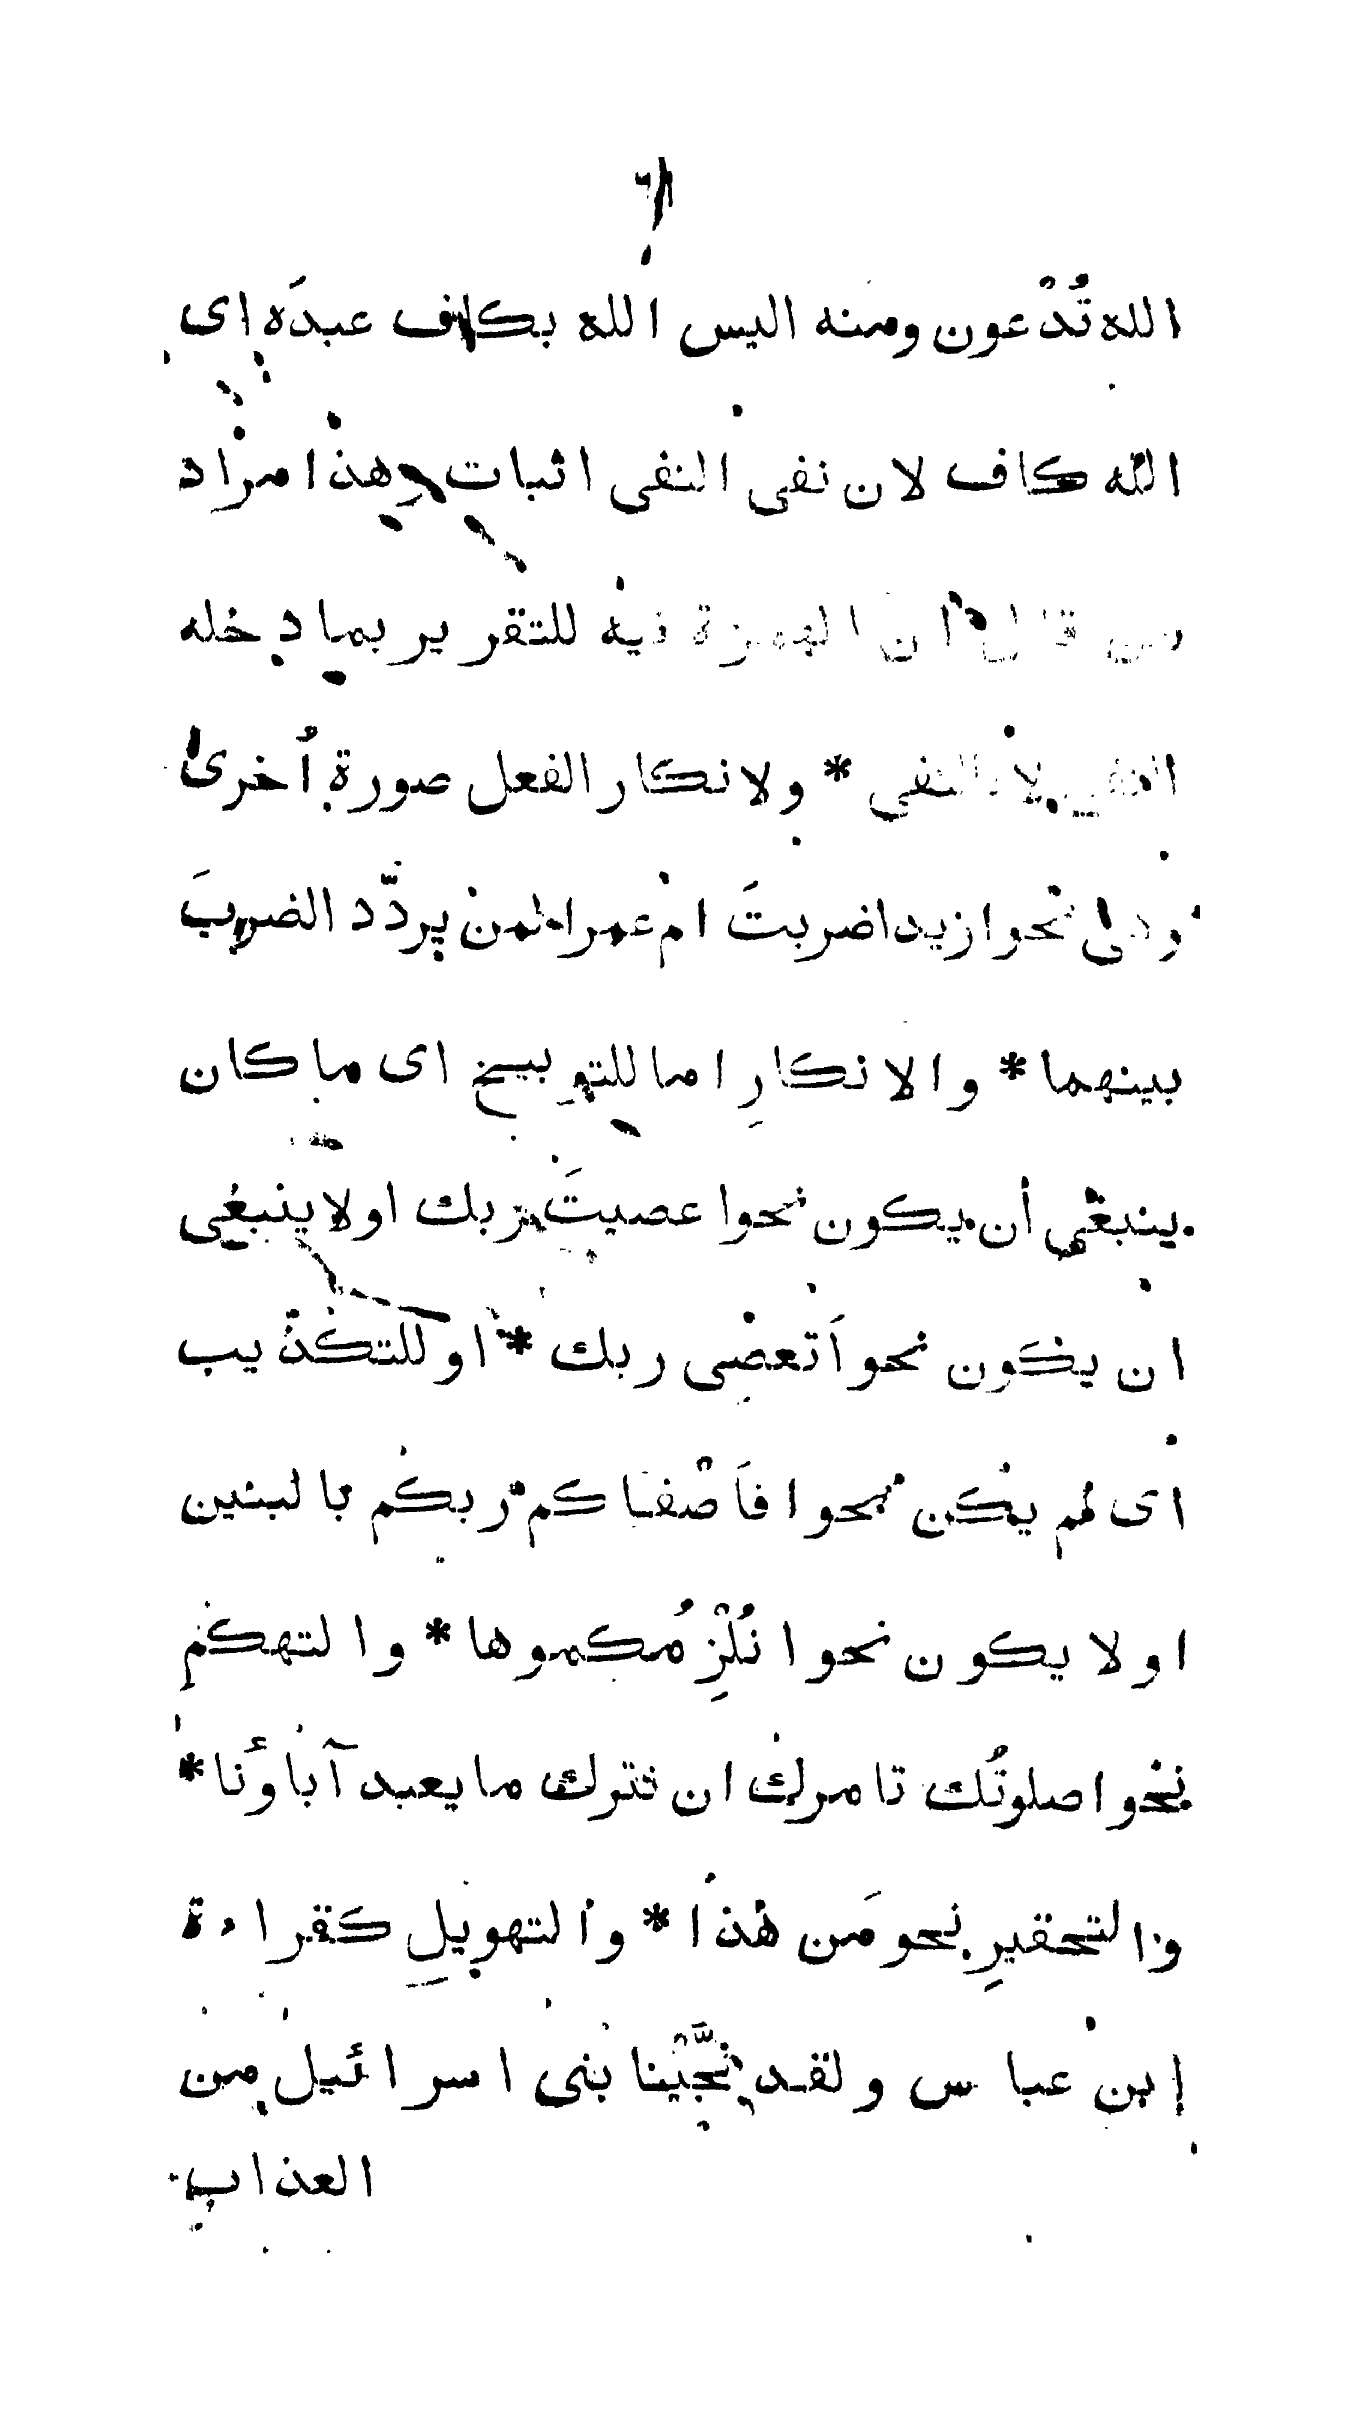 الله تُدْعون ومنه اليس الله بكاف عبدَه اى
الله كاف لان نفى النفى اثبات وهذا مراد
من قال ان الهمزة فيه للتقرير بما دخله
النفى لا بالنفى * ولانكار الفعل صورة اُخرى
وهى نحو ازيدا ضربتَ ام عمرا لمن يردّد الضربَ
بينهما * والانكارِ اما للتوبيخ اى ما كان
ينبغى أن يكون نحو اعصيتَ ربك او لا ينبغى
ان يكون نحو اَتعصى ربك * او للتكذيب
اى لم يكن نحو افاَصْفاكم ربكم بالبنين
او لا يكون نحو انُلْزِمُكموها * والتهكم
نحو اصلوتُك تامرك ان نترك ما يعبد آباؤنا *
والتحقيرِ نحو مَن هذا * والتهويلِ كقراءة
إبن عباس ولقد نجّيْنا بنى اسرائيل من
العذاب